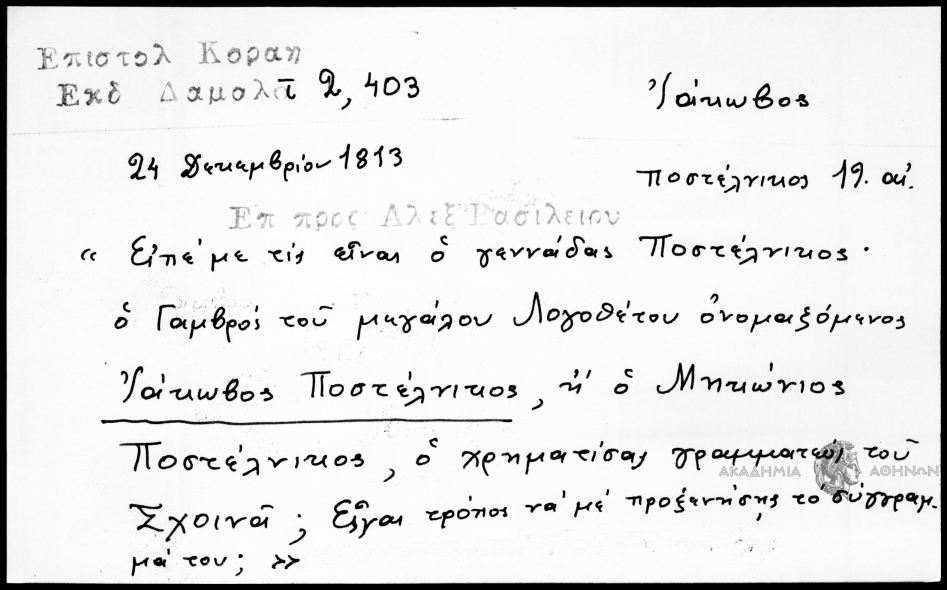 Επιστολ Κοραη
Εκδ Δαμαλᾶ 2, 403
Ἰάκωβος
24 Δεκεμβρίου 1813
Ποστέλνικος 19. αἰ.
Επ προς Αλεξ Βασιλειου
“ Εἰπέ με τίς εἶναι ὁ γεννάδας Ποστέλνικος ·
ὁ Γαμβρός τοῦ μεγάλου Λογοθέτου ὀνομαζόμενος
Ἰάκωβος Ποστέλνικος, ἤ ὁ Μηκώνιος
Ποστέλνικος, ὁ χρηματίσας γραμματεύς τοῦ
ΑΚΑΔΗΜΙΑ ΑΘΗΝΩΝ
Σχοινᾶ ; Εἶναι τρόπος νά μέ προξενήσῃς τό σύγγραμ-
μά του ; »